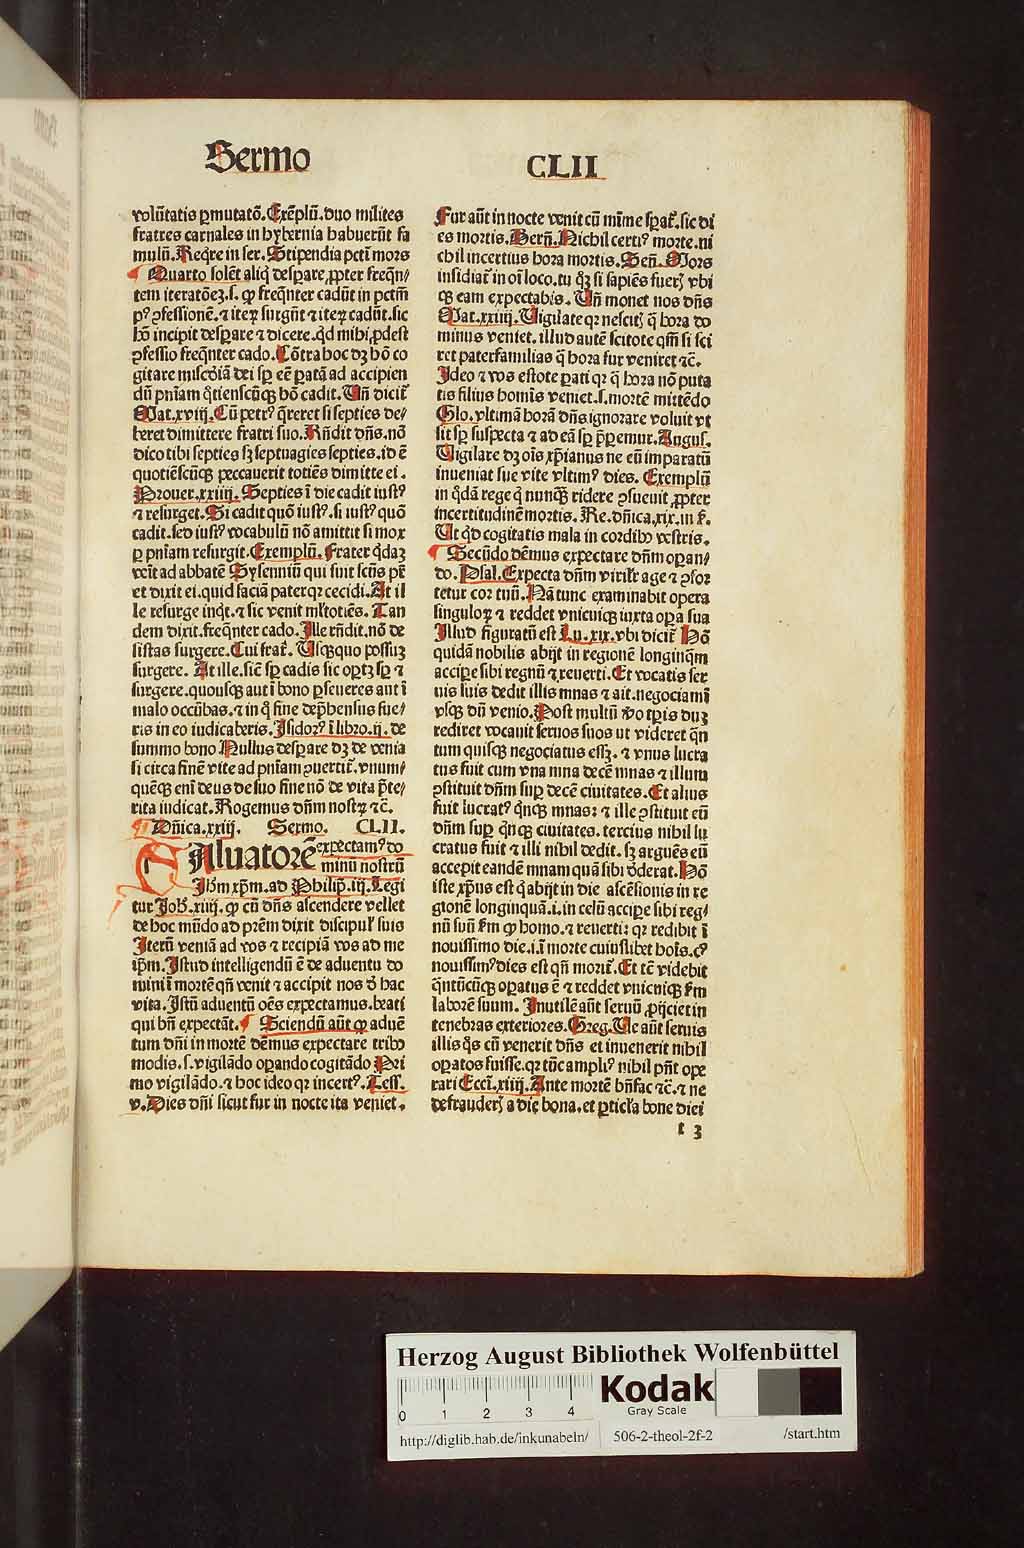 Sermo CLII
volūtatis ꝑmutatō. Exēplū. duo milites
fratres carnales in hybernia habuerūt fa
mulū. Reqͥre in ser. Stipendia pctī mors
Quarto solēt aliq̄ desꝑare, ꝓpter freqn̄⸗
tem iteratōeꝫ. s. ꝙ freqn̄ter cadūt in pctīm
pꝰ ꝯfessionē. ⁊ iteꝝ surgūt ⁊ iteꝝ cadūt. sic
hō incipit desꝑare ⁊ dicere. qͥd mihi ꝓdest
ꝯfessio freqn̄ter cado. Cōtra hoc dꝫ hō co
gitare miscd̓iā dei sꝑ eē ꝑatā ad accipien
dū pnīam qͦtienscūqꝫ hō cadit. Un̄ dicit̄
Mat. xviij. Cū petrꝰ q̄reret si septies de⸗
beret dimittere fratri suo. Rn̄dit dn̄s. nō
dico tibi septies sꝫ septuagies septies. id ē
quotiēscūqꝫ peccauerit totiēs dimitte ei.
Prouer. xxiiij. Septies ī die cadit iustꝰ
⁊ resurget. Si cadit quō iustꝰ. si iustꝰ quō
cadit. sed iustꝰ vocabulū nō amittit si mox
ꝑ pnīam resurgit. Exemplū. Frater qͥdaꝫ
venit ad abbatē Sysenniū qui fuit scūs pr̄
et dixit ei. quid faciā pater qꝛ cecidi. At il
le resurge inqͥt. ⁊ sic venit ml̄totiēs. Tan
dem dixit. freqn̄ter cado. Ille rn̄dit. nō de
sistas surgere. Cui frat̄. Usqꝫquo possuꝫ
surgere. At ille. sicē sꝑ cadis sic oꝑtꝫ sꝑ ⁊
surgere. quousqꝫ aut ī bono ꝑseueres aut ī
malo occūbas. ⁊ in qͦ fine dep̄hensus fue⸗
ris in eo iudicaberis. Isidorꝰ ī libro. ij. de
summo bono Nullus desꝑare dꝫ de venia
si circa finē vite ad pnīam ꝯuertit̄. vnum⸗
quēqꝫ enī deus de suo fine nō de vita p̄te⸗
rita iudicat. Rogemus dn̄m nostꝝ ⁊c̄.
Dn̄ica. xxiij. Sermo. CLII.
SAluatorē expectamꝰ do
minū nostrū
Jhm̄ xp̄m. ad Philip̄. iij. Legi
tur Joh̄. xiiij. ꝙ cū dn̄s ascendere vellet
de hoc mūdo ad prēm dixit discipul̄ suis
Iterū veniā ad vos ⁊ recipiā vos ad me
ip̄m. Istud intelligendū ē de aduentu do
mini ī morte qn̄ venit ⁊ accipit nos d̓ hac
vita. Istū aduentū oēs expectamus. beati
qui bn̄ expectāt. Sciendū aūt ꝙ aduē
tum dn̄i in mortē dēmus expectare tribꝰ
modis. s. vigilādo oꝑando cogitādo Pri
mo vigilādo. ⁊ hoc ideo qꝛ incertꝰ. Tess.
v. Dies dn̄i sicut fur in nocte ita veniet.
Fur aūt in nocte venit cū mīme sꝑat̄. sic di
es mortis. Bern̄. Nichil certiꝰ morte. ni
chil incertius hora mortis. Sen̄. Mors
insidiat̄ in oī loco. tu qͣꝫ si sapiēs fuerꝭ vbi
qꝫ eam expectabis. Un̄ monet nos dn̄s
Mat. xxiiij. Vigilate qꝛ nescitꝭ q̄ hora do
minus veniet. illud autē scitote qm̄ si sci
ret paterfamilias q̄ hora fur veniret ⁊c̄.
Ideo ⁊ vos estote ꝑati qꝛ q̄ hora nō puta
tis filius homīs veniet. s. mortē mittēdo
Glo. vltimā horā dn̄s ignorare voluit vt
sit sꝑ suspecta ⁊ ad eā sꝑ p̄ꝑemur. Augus.
Vigilare dꝫ oīs xp̄ianus ne eū imparatū
inueniat sue vite vltimꝰ dies. Exemplū
in qͦdā rege qͥ nunqͣꝫ ridere ꝯsueuit, ꝓpter
incertitudinē mortis. Re. dn̄ica. xix. in f̄.
Ut qͥd cogitatis mala in cordibꝰ vestris.
Secūdo dēmus expectare dn̄m oꝑan⸗
do. Psal. Expecta dn̄m viril̄r age ⁊ ꝯfor
tetur cor tuū. Nā tunc examinabit opera
singuloꝝ ⁊ reddet vnicuiqꝫ iuxta oꝑa sua
Illud figuratū est Lu. xix. vbi dicit̄ Hō
quidā nobilis abijt in regionē longinqͣm
accipe sibi regnū ⁊ reuerti. Et vocatis ser
uis suis dedit illis mnas ⁊ ait. negociamī
vsqꝫ dū venio. Post multū v̓o tꝑis duꝫ
rediret vocauit seruos suos vt videret qͣn
tum quisqꝫ negociatus essꝫ. ⁊ vnus lucra
tus fuit cum vna mna decē mnas ⁊ illum
ꝯstituit dn̄m suꝑ decē ciuitates. Et alius
fuit lucratꝰ qͥnqꝫ mnas: ⁊ ille ꝯstituit eū
dn̄m suꝑ qͥnqꝫ ciuitates. tercius nihil lu
cratus fuit ⁊ illi nihil dedit. sꝫ arguēs eū
accepit eandē mnam quā sibi d̓derat. Hō
iste xp̄us est qͥ abijt in die ascēsionis in re
gionē longinquā. i. in celū accipe sibi reg⸗
nū suū fm̄ ꝙ homo. ⁊ reuerti: qꝛ redibit ī
nouissimo die. i. ī morte cuiuslibet hoīs. cꝰ
nouissimꝰ dies est qn̄ morit̄. Et tē videbit
qͣntūcūqꝫ oꝑatus ē ⁊ reddet vnicuiqꝫ fm̄
laborē suum. Inutilē aūt seruū ꝓijciet in
tenebras exteriores. Greg. Ve aūt seruis
illis qͦs cū venerit dn̄s et inuenerit nihil
oꝑatos fuisse. qꝛ tūc ampliꝰ nihil pn̄t ope
rari Ecci. xiiij. Ante mortē bn̄fac ⁊c̄. ⁊ ne
defrauderꝭ a die bona. et ꝑticl̄a bone diei
t 3
Herzog August Bibliothek Wolfenbüttel
0 1 2 3 4
Kodak
Gray Scale
http://diglib.hab.de/inkunabeln/ 506-2-theol-2f-2 /start.htm